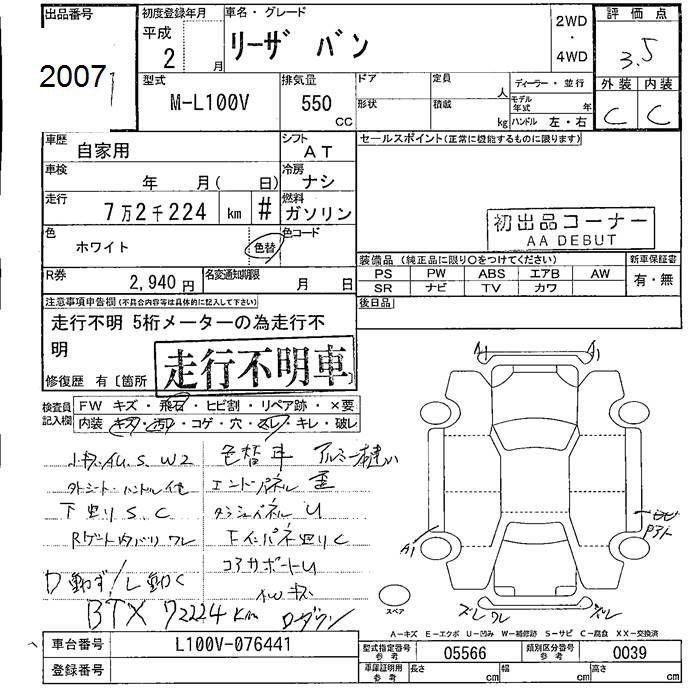 出品番号
2007
初度登録年月
平成
2 月
車名・グレード
リーザ バン
2WD
・
4WD
評価点
3.5
外装 内装
C C
型式
M-L100V
排気量
550
CC
ドア 定員 人
形状 積載 kg
ディーラー・並行
モデル年式 年
ハンドル 左・右
車歴
自家用
シフト
AT
セールスポイント(正常に機能するものに限ります)
車検
年 月( 日)
冷房
ナシ
走行
7万2千224 km #
燃料
ガソリン
初出品コーナー
AA DEBUT
色
ホワイト
色替
色コード
装備品 (純正品に限り○をつけてください)
新車保証書
PS PW ABS エアB AW
SR ナビ TV カワ
有・無
R券
2,940 円
名変通知期限
月 日
後日品
注意事項申告欄(不具合内容等は具体的に記入して下さい)
走行不明 5桁メーターの為走行不
明
走行不明車
修復歴 有〔箇所
検査員
記入欄
FW キズ・飛石・ヒビ割・リペア跡・×要
内装 キズ・汚レ・コゲ・穴・スレ・キレ・破レ
小キズ凹 S. W2
色替車
下廻り S. C
Rゲート内バリ ワレ
エンドパネル 歪
ダッシュパネル U
コアサポート U
AW キズ
D動ず/L動く
BTX 72224km
ローダウン
A1 A1
A1
ズレ ワレ
ズレ
スペア
A-キズ E-エクボ U-凹み W-補修跡 S-サビ C-腐食 XX-交換済
車台番号
L100V-076441
型式指定番号
参考
05566
類別区分番号
参考
0039
登録番号
車庫証明用
参考
長さ cm 幅 cm 高さ cm